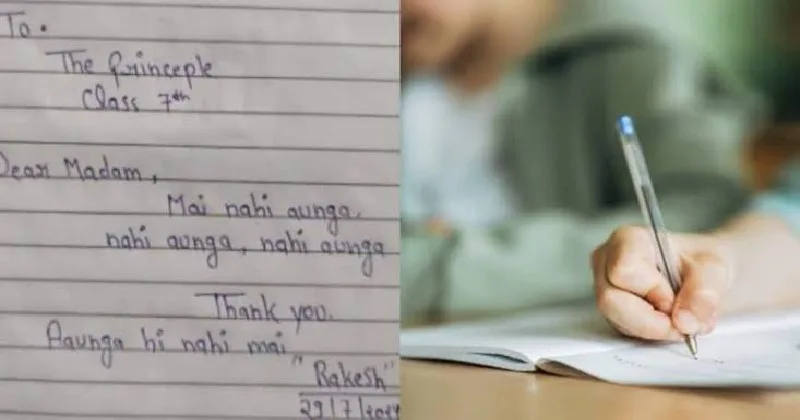 To.
The Princeple
Class 7th
Dear Madam,
Mai nahi aunga,
nahi aunga, nahi aunga
Thank you.
Aaunga hi nahi mai
"Rakesh"
29/7/